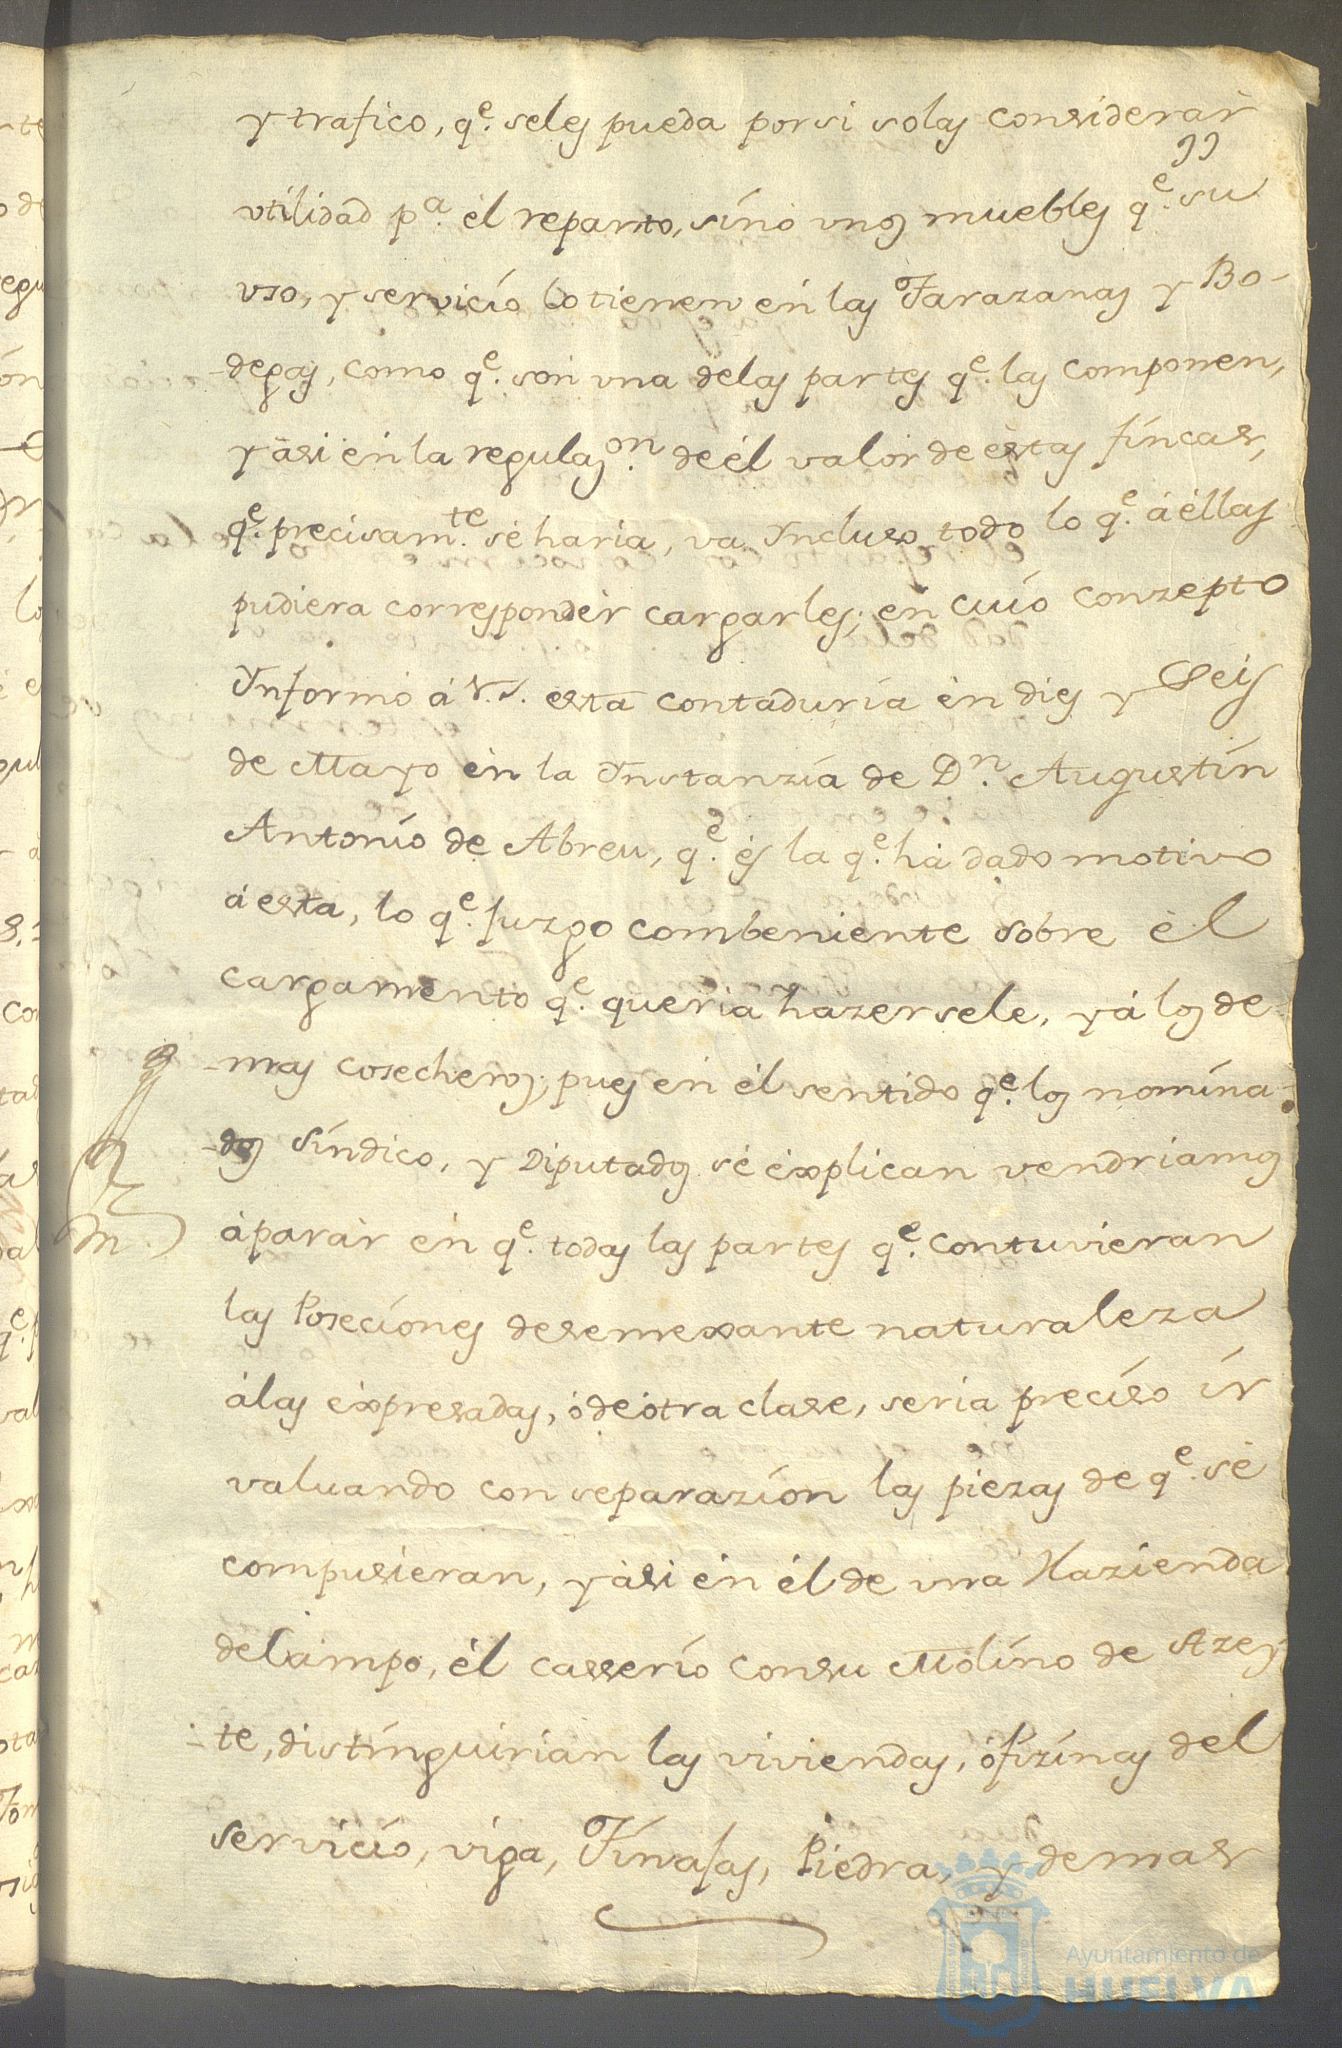 y trafico, qe. seles pueda por si solas considerar
11
utilidad pa. èl reparto, sinó unos muebles qe. su
uso, y servicio lo tienen èn las Tarazanas y Bo-
-degas, como qe. son una delas partes qe. las componen,
y àsi èn la regulazon. de èl valor de èstas fincas,
qe. precisamte. sè haria, va Yncluso todo lo qe. à èllas
pudiera corresponder cargarles; en cuió conzepto
Ynformó à V.S. esta contaduría èn dies y Seis
de Mayo èn la Ynstanzia de Dn. Augustín
Antonio de Abreu, qe. ès la qe. hà dado motivo
à esta, lo qe. juzgo combeniente sobre èl
cargamento qe. queria hazersele, y à los de
-mas cosecheros; pues en èl sentido qe. los nomina-
-dos Síndico, y Diputados sè èxplican vendriamos
à paràr èn qe. todas las partes qe. contuvieran
las Poseciones desemexante naturaleza
àlas èxpresadas, ò de òtra clase, seria preciso ìr
valuando con separazión las piezas de qe. sè
compusieran, y àsi èn èl de una Hazienda
del campo, èl casserío consu Molino de Azey-
-te, distinguirian las viviendas, òfizinas del
servicio, viga, Tinajas, Piedra, y demas
Ayuntamiento de
HUELVA